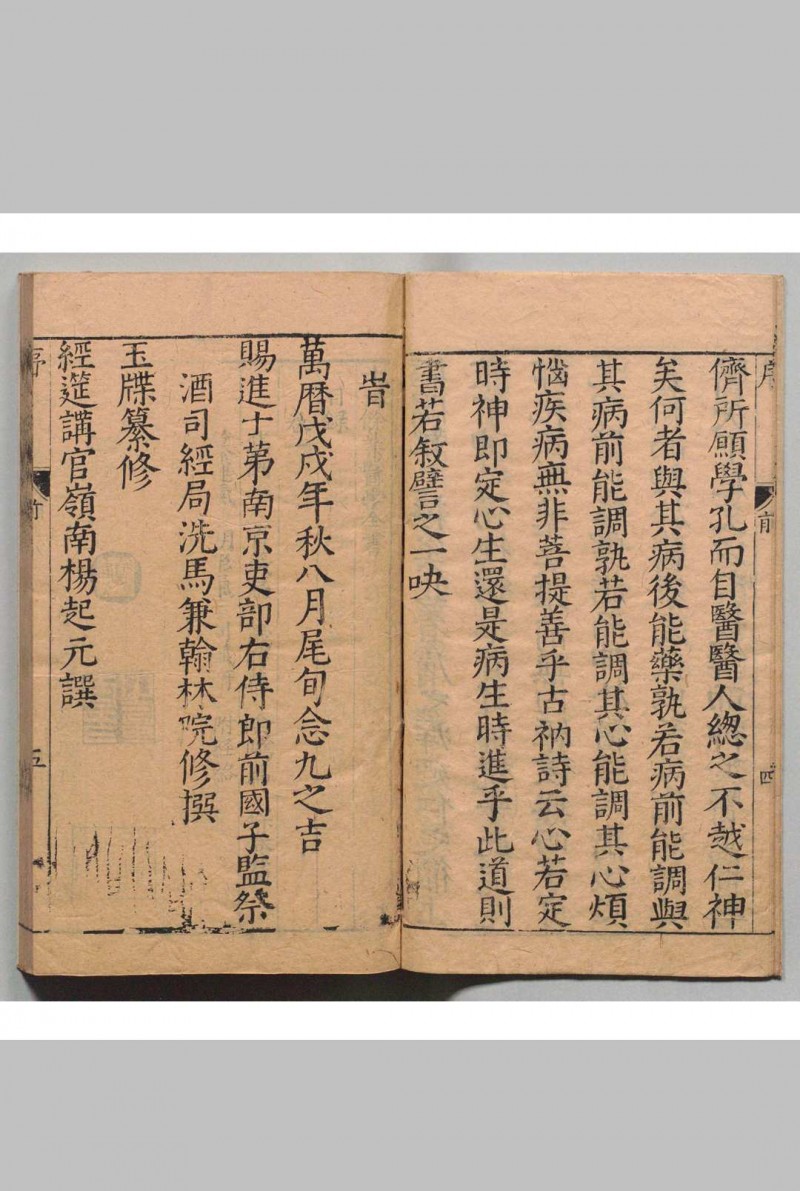 序
前
四
儕所願學孔而自醫醫人總之不越仁神
矣何者與其病後能藥孰若病前能調與
其病前能調孰若能調其心能調其心煩
惱疾病無非菩提善乎古衲詩云心若定
時神即定心生還是病生時進乎此道則
書若敘譬之一吷
旹
萬曆戊戌年秋八月尾旬念九之吉
賜進士第南京吏部右侍郎前國子監祭
酒司經局洗馬兼翰林院修撰
玉牒纂修
經筵講官嶺南楊起元譔
序
五